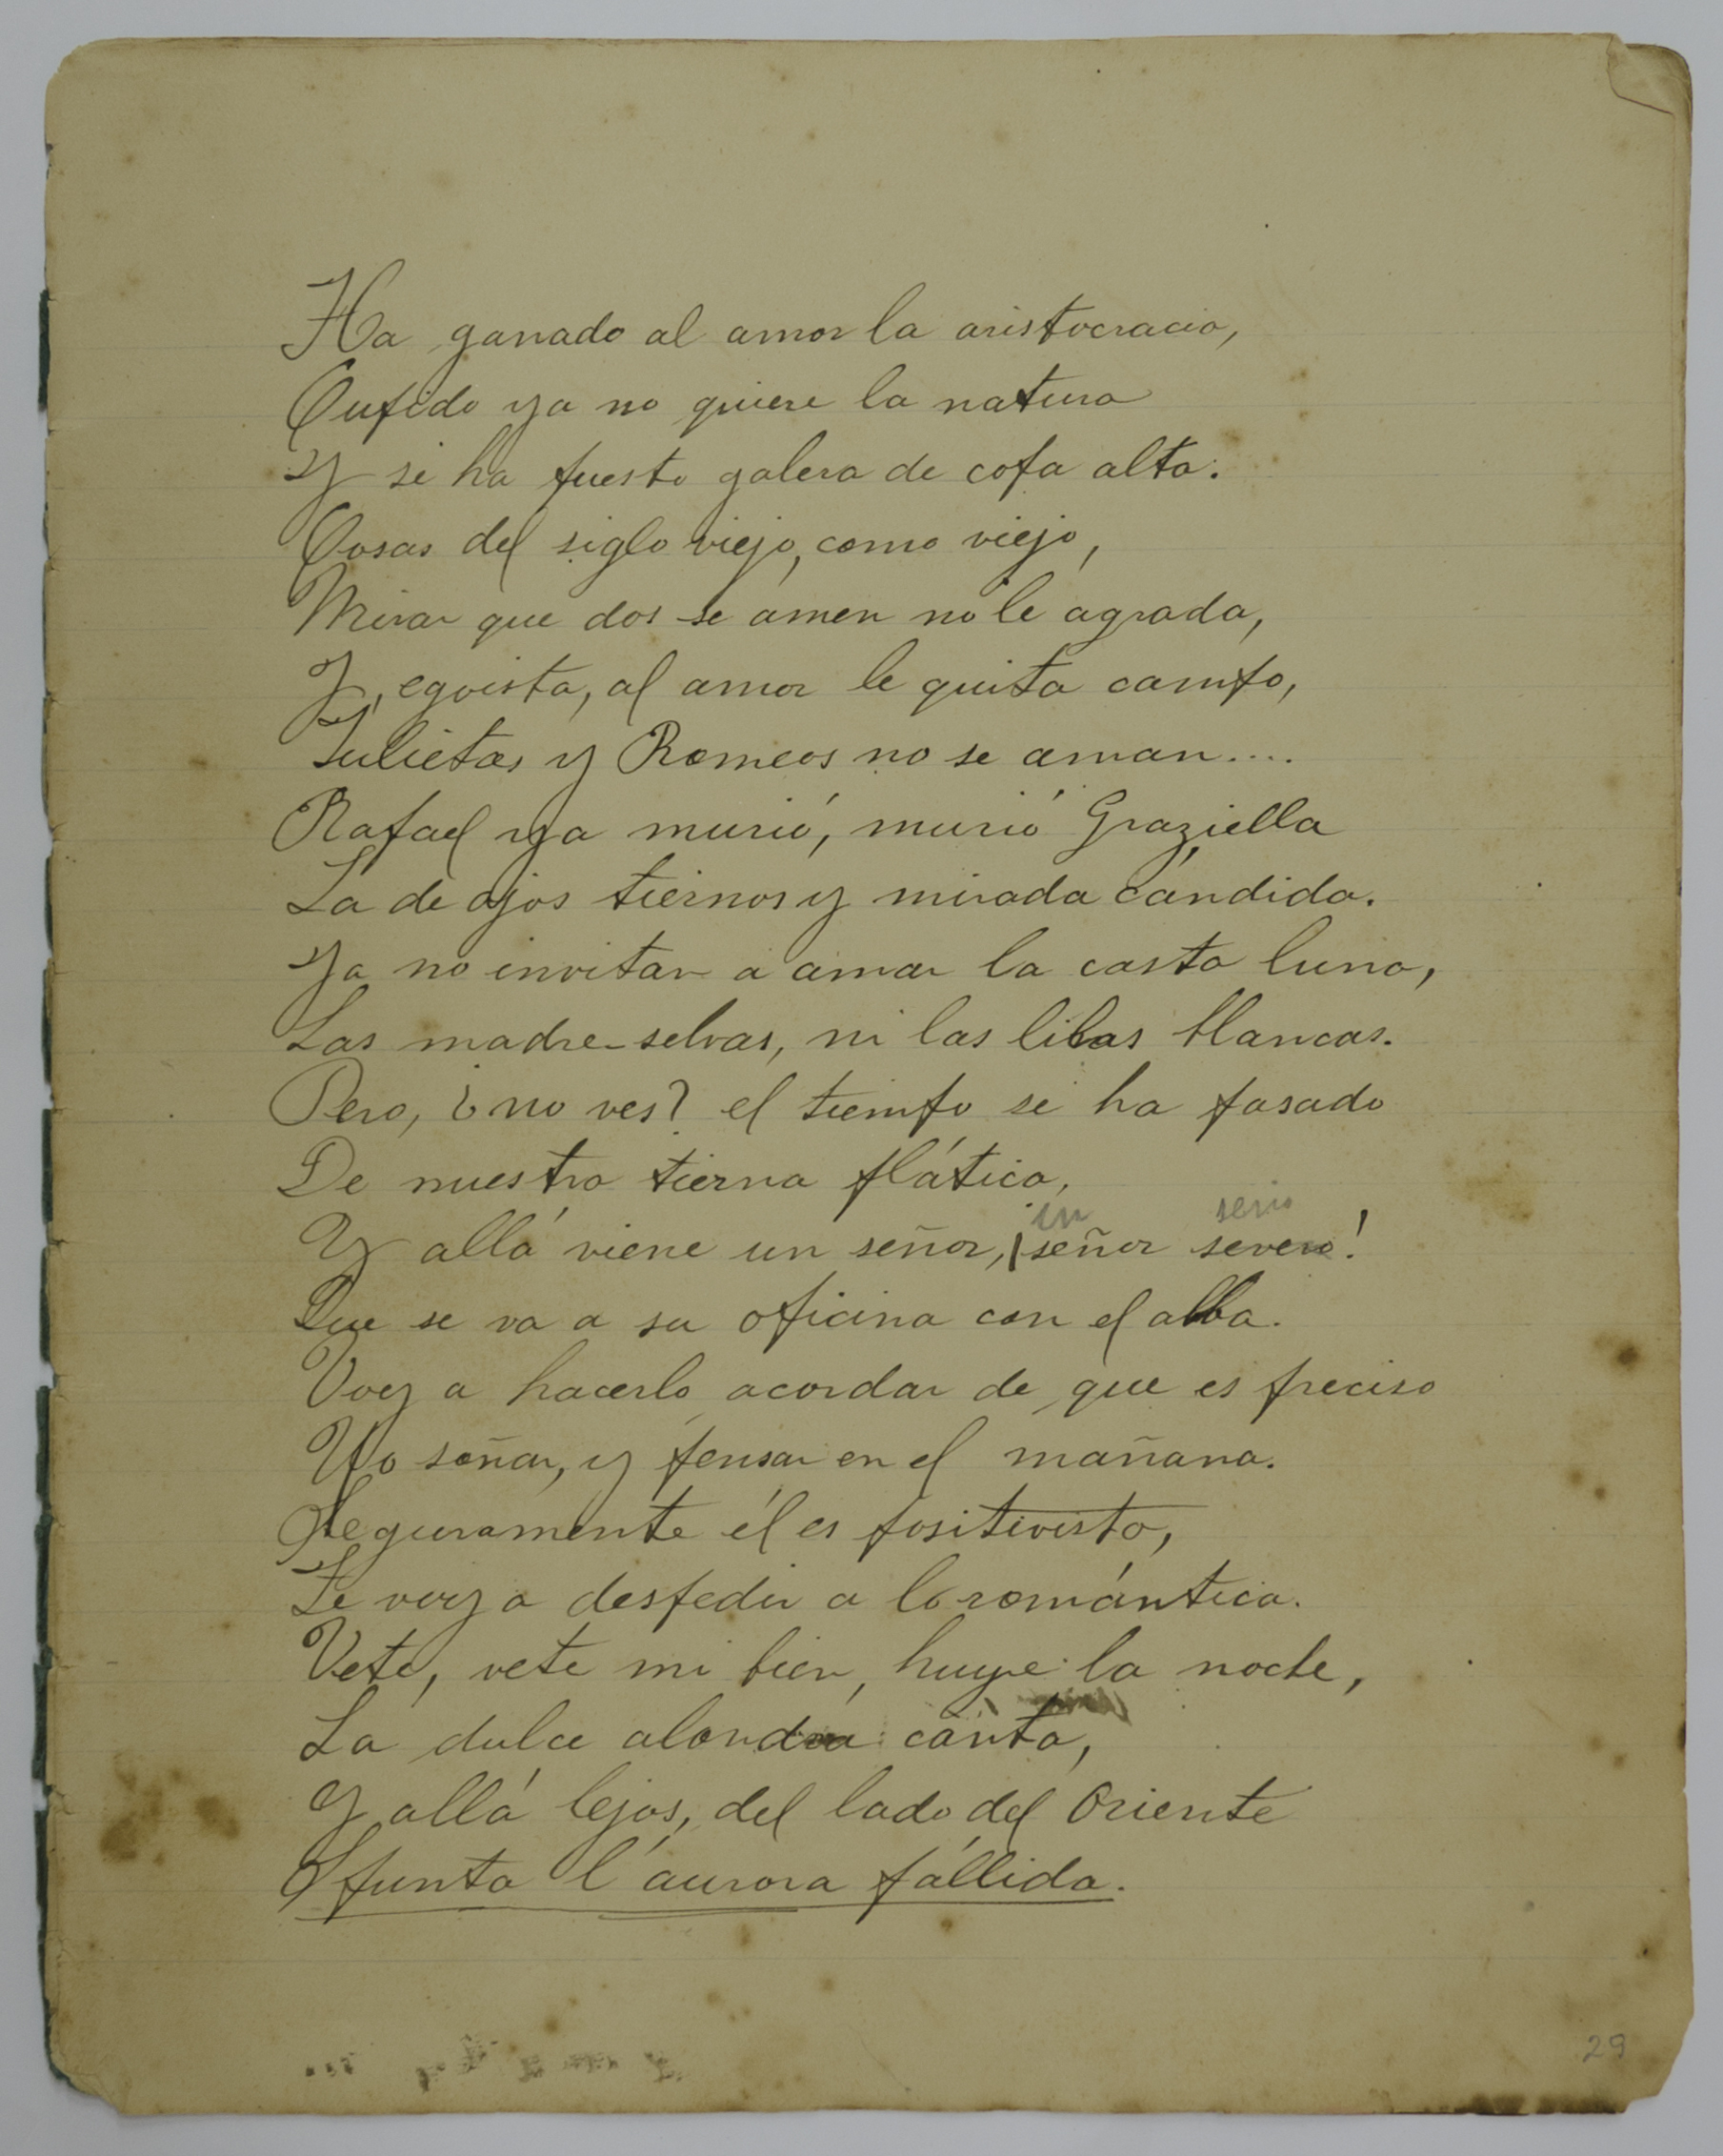 Ha ganado al amor la aristocracia,
Cupido ya no quiere la natura
Y se ha puesto galera de copa alta.
Cosas del siglo viejo, como viejo,
Mirar que dos se amen no le agrada,
Y, egoista, al amor le quita campo,
Julietas y Romeos no se aman....
Rafael ya murió, murió Graziella
La de ojos tiernos y mirada cándida.
Ya no invitan a amar la casta luna,
Las madre-selvas, ni las lilas blancas.
Pero, ¿no ves? el tiempo se ha pasado
De nuestra tierna plática,
un serio
Y allá viene un señor, ¡señor severo!
Que se va a su oficina con el alba.
Voy a hacerlo acordar de que es preciso
No soñar, y pensar en el mañana.
Seguramente él es positivista,
Le voy a despedir a lo romántica.
Vete, vete mi bien, huye la noche,
La dulce alondra canta,
Y allá lejos, del lado del Oriente
Spunta l'aurora pállida.
29